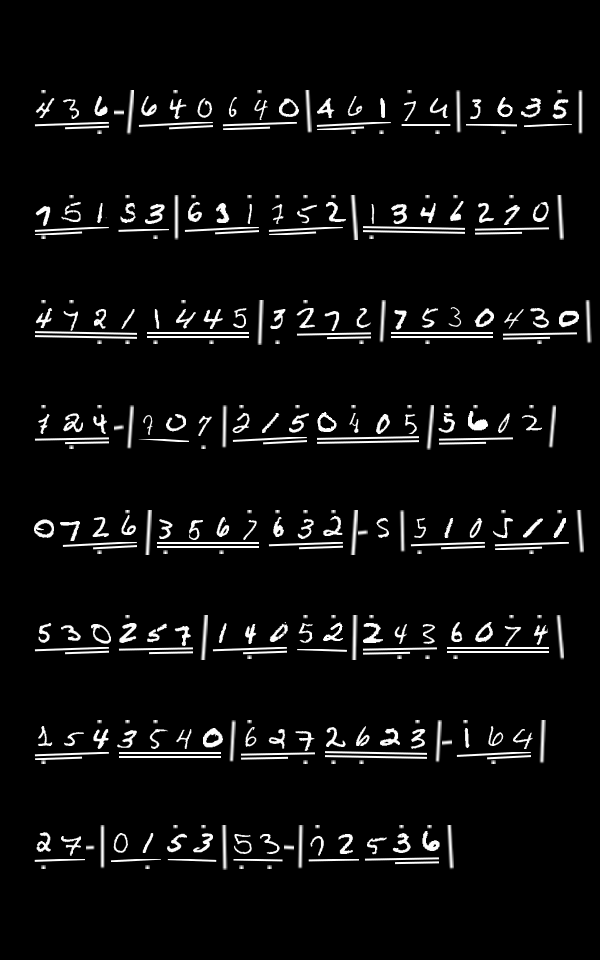 436-|640640|46174|3635
75153|631752|1346270
4721|1445|3272|7530430
724-|707|2150405|5602
0726|3567632|-5|510511
530257|14052|2436074
1543540|6272623|-164
27-|0153|53-|72536